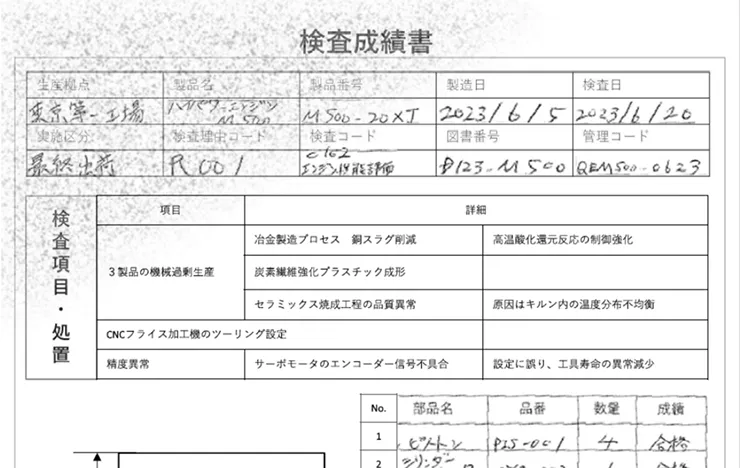 検査成績書
生産拠点 製品名 製品番号 製造日 検査日
東京第一工場 ハイパワーエンジン M500 M500-20XJ 2023/6/5 2023/6/20
実施区分 検査理由コード 検査コード 図書番号 管理コード
最終出荷 R001 C162 エンジン性能評価 D123-M500 QEM500-0623
検査項目・処置
項目 詳細
3製品の機械過剰生産
冶金製造プロセス 銅スラグ削減 高温酸化還元反応の制御強化
炭素繊維強化プラスチック成形
セラミックス焼成工程の品質異常 原因はキルン内の温度分布不均衡
CNCフライス加工機のツーリング設定
精度異常 サーボモータのエンコーダー信号不具合 設定に誤り、工具寿命の異常減少
No. 部品名 品番 数量 成績
1 ピストン PIS-001 4 合格
2 シリンダー 合格